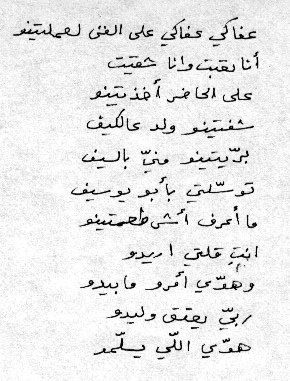 عفاكي عفاكي على الفنى لعملتينو
أنا نغبت وانا شقيت
على الحاضر أخذتينو
شفتينو ولد عالكيف
برّيتينو منيّ بالسيف
توسّلتي بأبو يوسيف
ما أعرف أش طعمتينو
انتِ قلتي اريدو
وهوّي أمرو مابيدو
ربيّ يعتق وليدو
هوّي اللّي يسلّمو